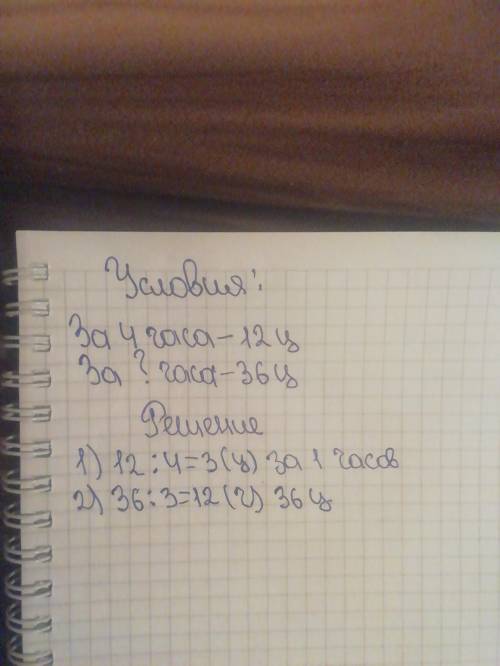 Условия:
За 4 часа - 12 ц
За ? часа - 36 ц
Решение
1) 12 : 4 = 3 (ц) за 1 часов
2) 36 : 3 = 12 (ч) 36 ц